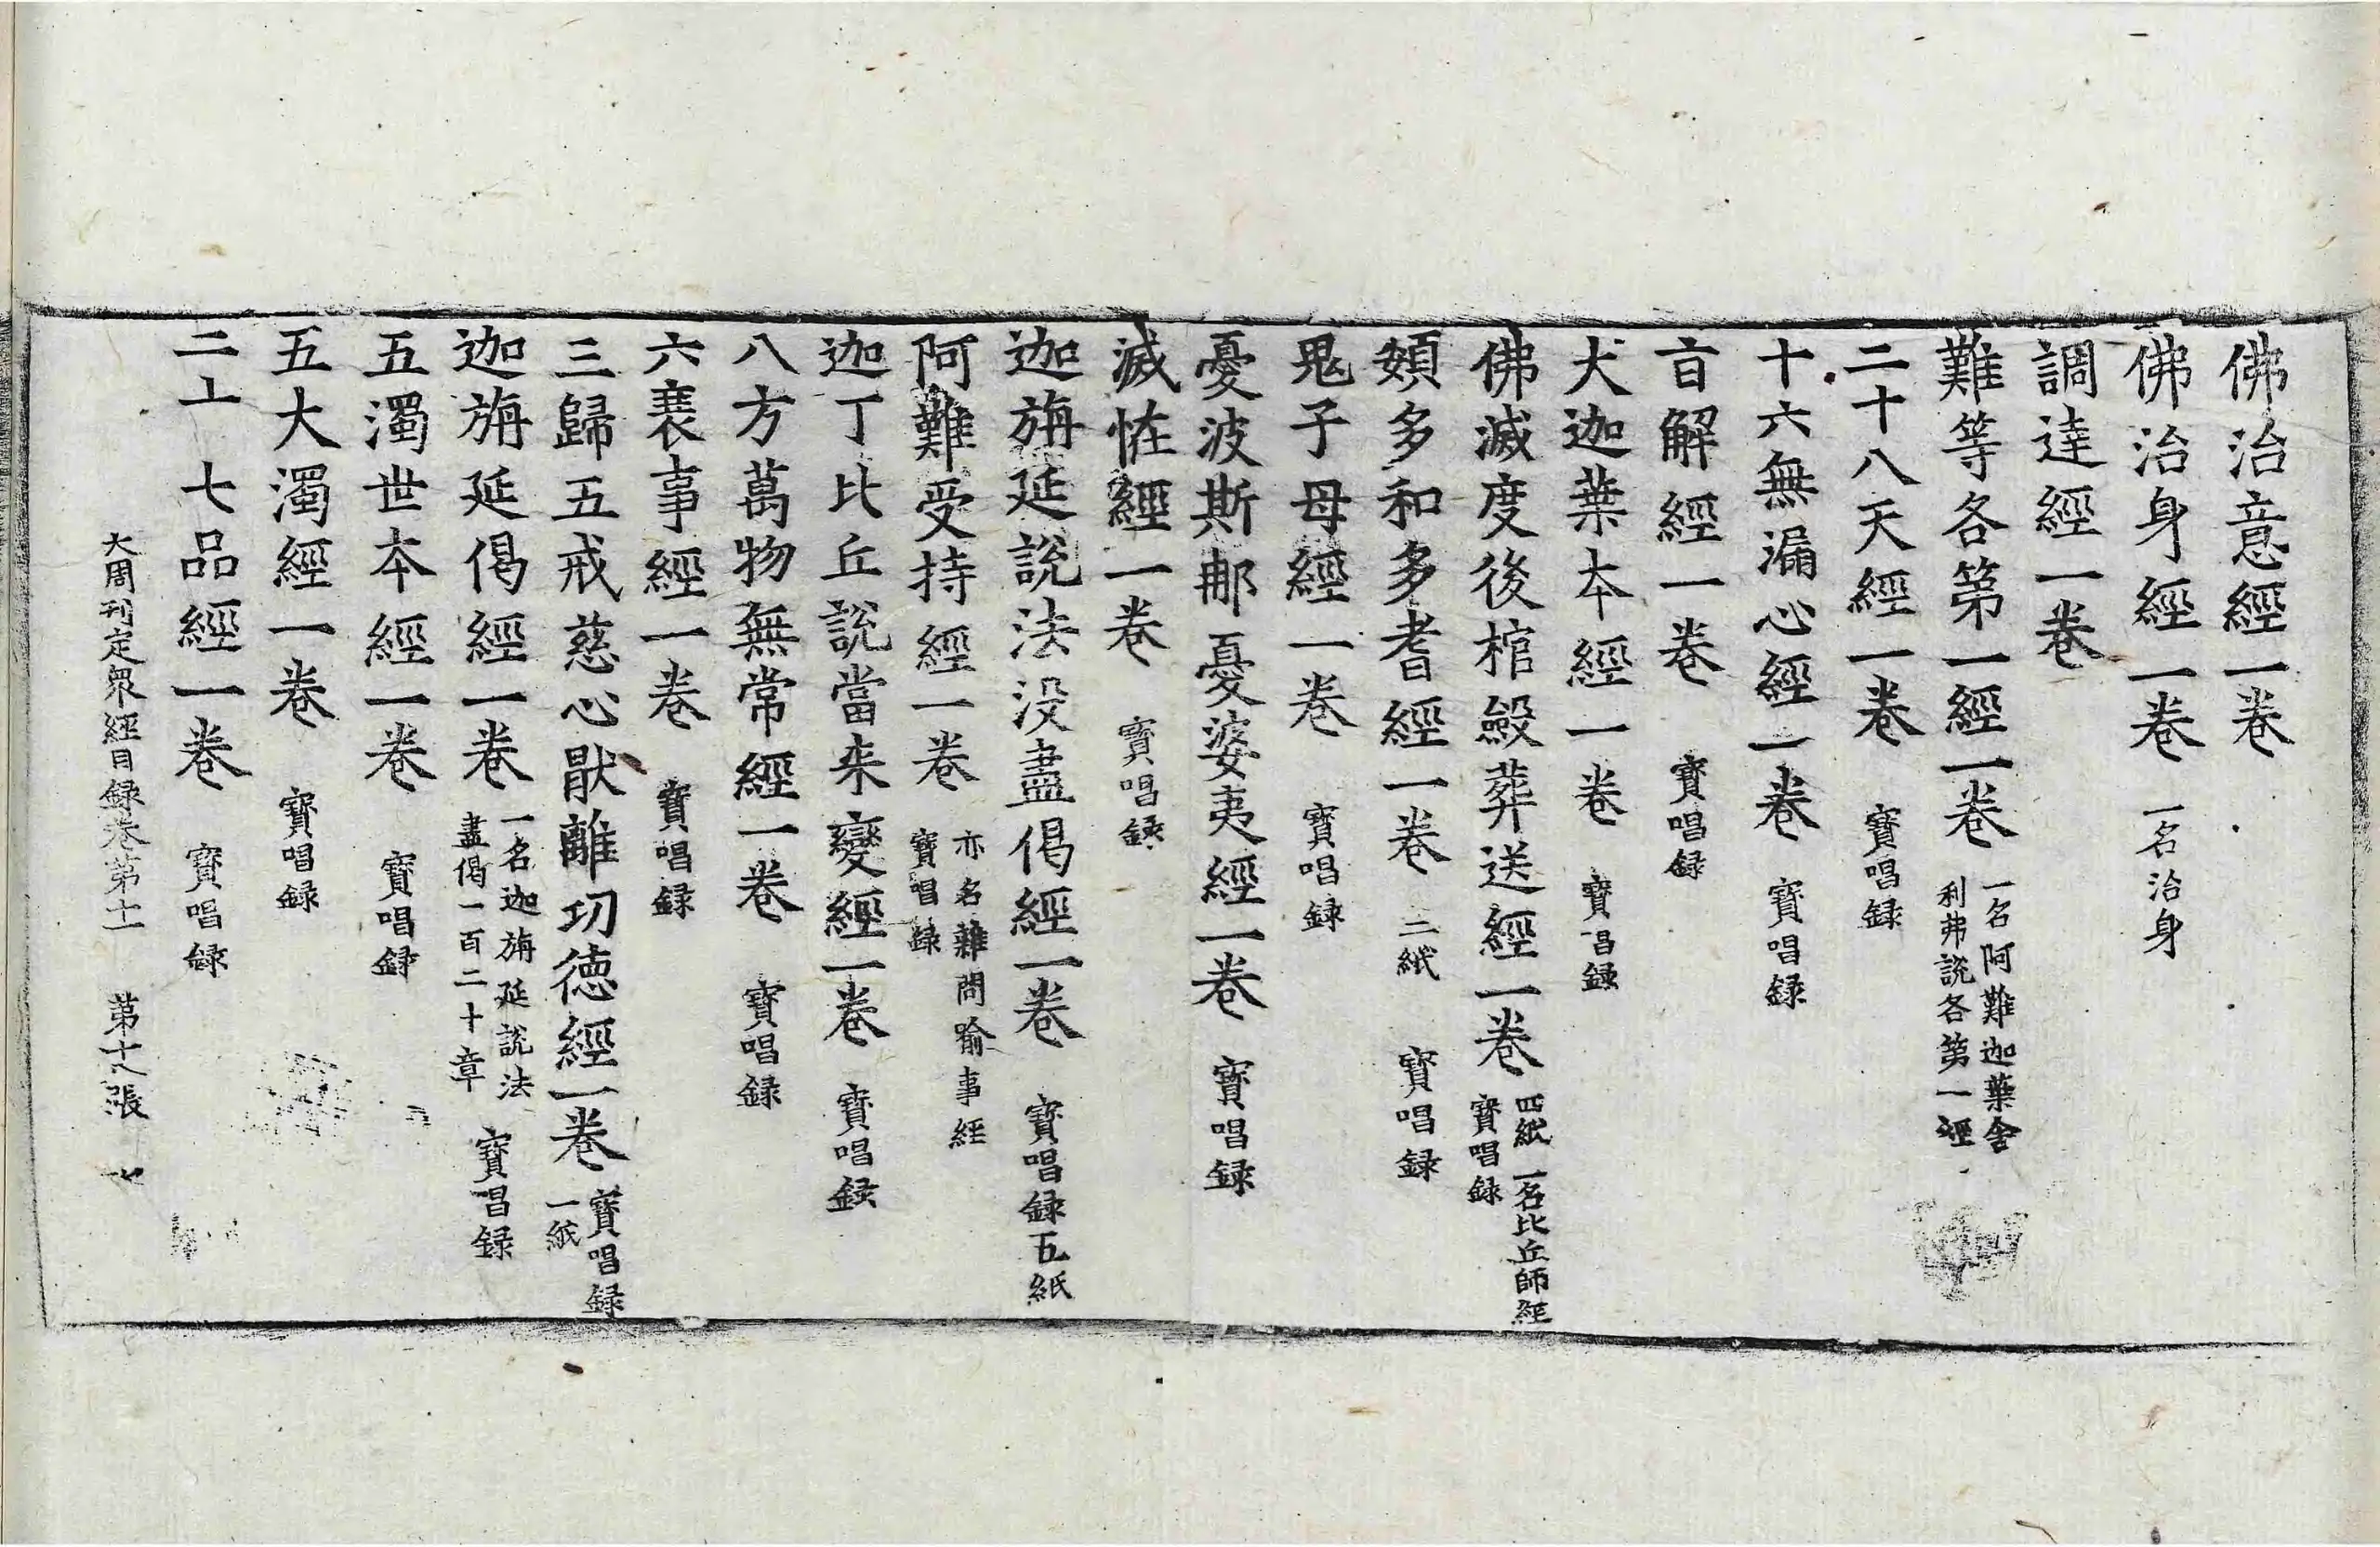 佛治意經一卷
佛治身經一卷 一名治身
調達經一卷
難等各第一經一卷 一名阿難迦葉舍利弗說各第一經
二十八天經一卷 寶唱録
十六無漏心經一卷 寶唱録
盲解經一卷 寶唱録
大迦葉本經一卷 寶唱録
佛滅度後棺斂葬送經一卷 四紙 一名比丘師經 寶唱録
頞多和多耆經一卷 二紙 寶唱録
鬼子母經一卷 寶唱録
憂波斯那憂婆夷經一卷 寶唱録
滅恠經一卷 寶唱録
迦旃延說法没盡偈經一卷 寶唱録 五紙
阿難受持經一卷 亦名雜問喻事經 寶唱録
迦丁比丘說當来變經一卷 寶唱録
八方萬物無常經一卷 寶唱録
六衰事經一卷 寶唱録
三歸五戒慈心猒離功德經一卷 寶唱録 一紙
迦旃延偈經一卷 一名迦旃延說法盡偈一百二十章 寶唱録
五濁世本經一卷 寶唱録
五大濁經一卷 寶唱録
二十七品經一卷 寶唱録
大周刊定衆經目録卷第十一 第十八張